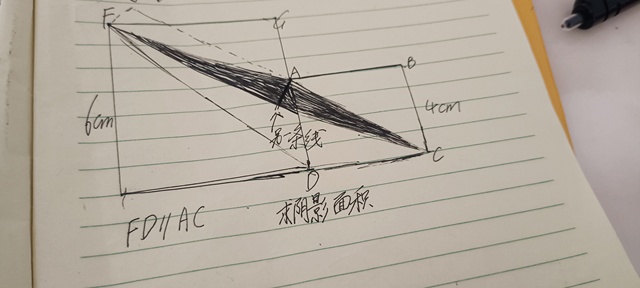 F G
A B
6cm 4cm
另一条线
D C
FD//AC 求阴影面积